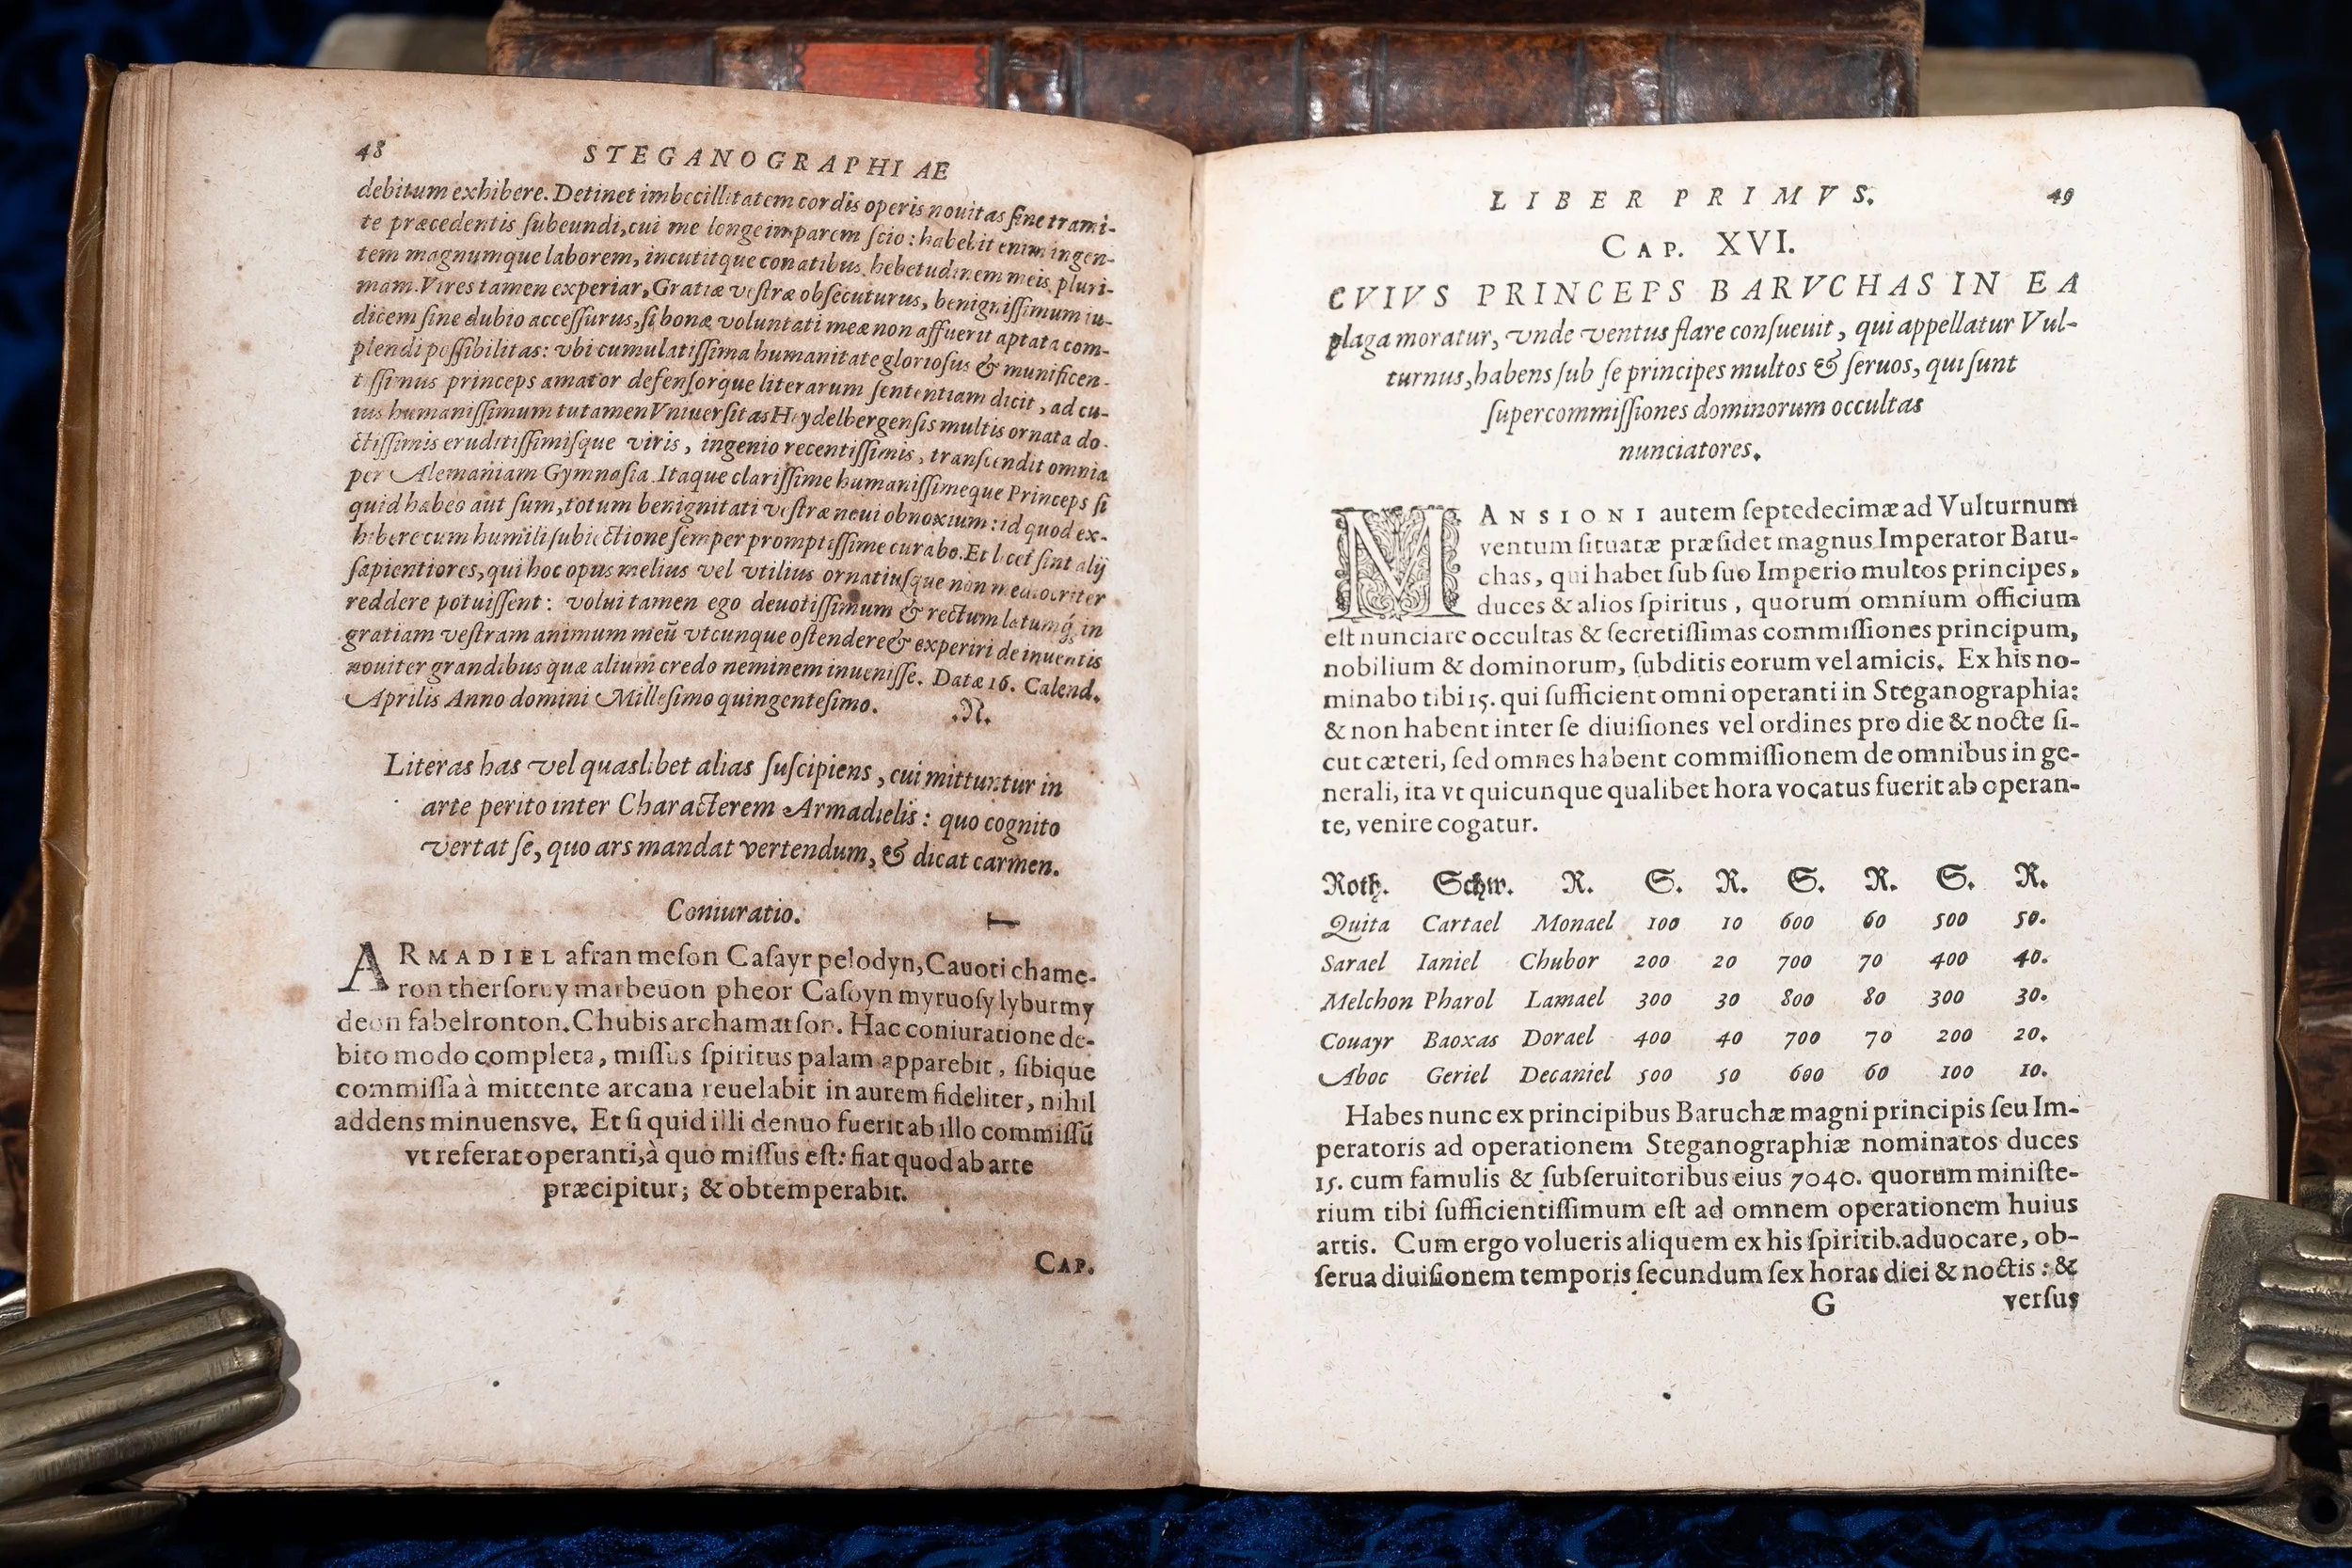 48 STEGANOGRAPHIAE
debitum exhibere. Detinet imbecillitatem cordis operis nouitas ſine trami-
te præcedentis ſubeundi, cui me longe imparem ſcio: habebit enim ingen-
tem magnumque laborem, incutitque conatibus hebetudinem meis pluri-
mam. Vires tamen experiar, Gratiæ veſtræ obſecuturus, benigniſſimum iu-
dicem ſine dubio acceſſurus, ſi bonæ voluntati meæ non affuerit aptata com-
plendi poſſibilitas: vbi cumulatiſſima humanitate glorioſus & munificen-
tiſſimus princeps amator defenſorque literarum ſententiam dicit, ad cu-
ius humaniſſimum tutamen Vniuerſitas Heydelbergenſis multis ornata do-
ctiſſimis eruditiſſimiſque viris, ingenio recentiſſimis, tranſcendit omnia
per Alemaniam Gymnaſia. Itaque clariſſime humaniſſimeque Princeps ſi
quid habeo aut ſum, totum benignitati veſtræ neui obnoxium: id quod ex-
hibere cum humili ſubiectione ſemper promptiſſime curabo. Et licet ſint alij
ſapientiores, qui hoc opus melius vel vtilius ornatiuſque non mediocriter
reddere potuiſſent: volui tamen ego deuotiſſimum & rectum latumq́; in
gratiam veſtram animum meū vtcunque oſtendere & experiri de inuentis
nouiter grandibus quæ alium credo neminem inueniſſe. Datæ 16. Calend.
Aprilis Anno domini Milleſimo quingenteſimo. .N.
Literas has vel quaslibet alias ſuſcipiens, cui mittuntur in
arte perito inter Characterem Armadielis: quo cognito
vertat ſe, quo ars mandat vertendum, & dicat carmen.
Coniuratio.
ARMADIEL afran meſon Caſayr pelodyn, Cauoti chame-
ron therſoruy marbeuon pheor Caſoyn myruoſy lyburmy
deon fabelronton. Chubis archamatſor. Hac coniuratione de-
bito modo completa, miſſus ſpiritus palam apparebit, ſibique
commiſſa à mittente arcana reuelabit in aurem fideliter, nihil
addens minuensve. Et ſi quid illi denuo fuerit ab illo commiſſū
vt referat operanti, à quo miſſus eſt: fiat quod ab arte
præcipitur; & obtemperabit.
CAP.
LIBER PRIMVS. 49
CAP. XVI.
CVIVS PRINCEPS BARVCHAS IN EA
plaga moratur, vnde ventus flare conſueuit, qui appellatur Vul-
turnus, habens ſub ſe principes multos & ſeruos, qui ſunt
ſuper commiſſiones dominorum occultas
nunciatores.
MANSIONI autem ſeptedecimæ ad Vulturnum
ventum ſituatæ præſidet magnus Imperator Baru-
chas, qui habet ſub ſuo Imperio multos principes,
duces & alios ſpiritus, quorum omnium officium
eſt nunciare occultas & ſecretiſſimas commiſſiones principum,
nobilium & dominorum, ſubditis eorum vel amicis. Ex his no-
minabo tibi 15. qui ſufficient omni operanti in Steganographia:
& non habent inter ſe diuiſiones vel ordines pro die & nocte ſi-
cut cæteri, ſed omnes habent commiſſionem de omnibus in ge-
nerali, ita vt quicunque qualibet hora vocatus fuerit ab operan-
te, venire cogatur.
Roth. Schw. R. S. R. S. R. S. R.
Quita Cartael Monael 100 10 600 60 500 50.
Sarael Ianiel Chubor 200 20 700 70 400 40.
Melchon Pharol Lamael 300 30 800 80 300 30.
Couayr Baoxas Dorael 400 40 700 70 200 20.
Aboc Geriel Decaniel 500 50 600 60 100 10.
Habes nunc ex principibus Baruchæ magni principis ſeu Im-
peratoris ad operationem Steganographiæ nominatos duces
15. cum famulis & ſubſeruitoribus eius 7040. quorum miniſte-
rium tibi ſufficientiſſimum eſt ad omnem operationem huius
artis. Cum ergo volueris aliquem ex his ſpiritib. aduocare, ob-
ſerua diuiſionem temporis ſecundum ſex horas diei & noctis: &
G verſus